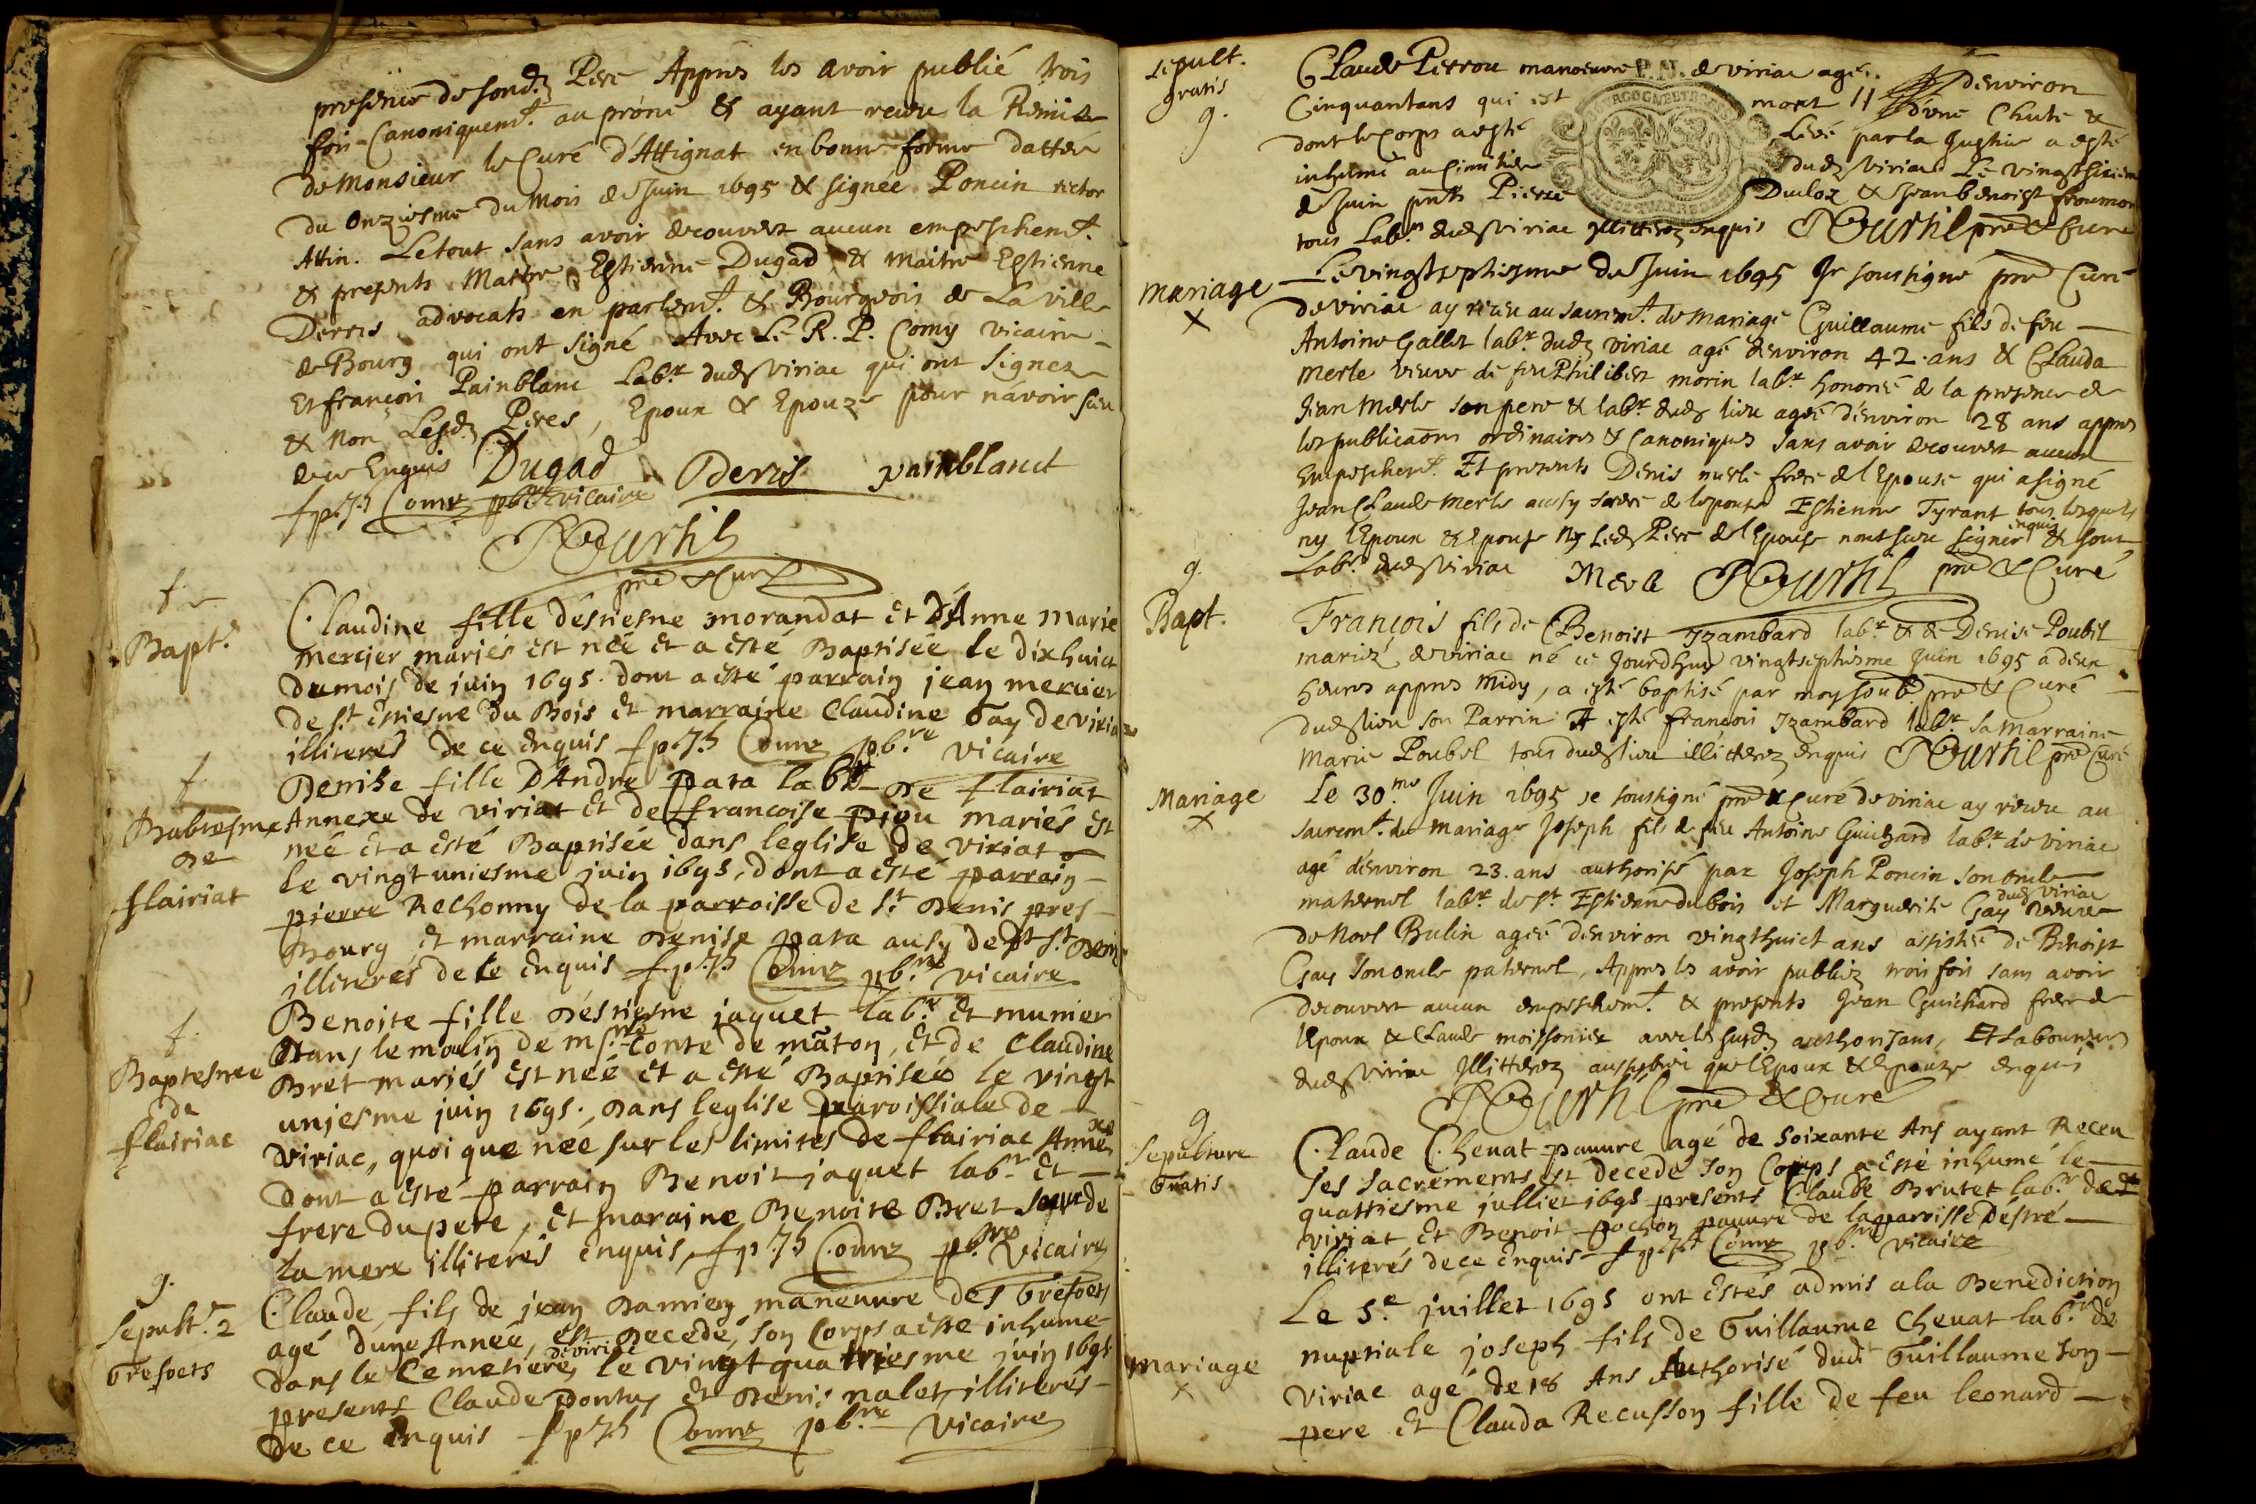 presence de sond. Pere Appres les avoir publié trois
fois Canoniquemt. au prône & ayant receu la Remise
de Monsieur le Curé d'Attignat en bonne forme dattée
du Onziesme du Mois de Juin 1695 & signée Poncin rector
Attin. Le tout sans avoir decouvert aucun empeschemt.
& presents Maitre Estienne Dugad & Maitre Estienne
Derris advocats en parlemt. & Bourgeois de La ville
de Bourg qui ont signé Avec Le R. P. Comy vicaire
Et françois Painblanc Labr. dud Viriac qui ont signez
& non Lesd. Peres, Epoux & Epouze pour n'avoir sceu
de ce Enquis Dugad Derris painblanct
f p. J. B Comz pbre vicaire
pre & Curé
f.
Bapt.
Claudine fille d'estiesne morandat Et D'Anne Marie
mercier mariés est neé Et a esté Baptiseé le dixhuict
du mois de juin 1695. dont a esté parrain jean mercier
de st. estiesne du Bois Et marraine Claudine Gay de viria
illiterés de ce enquis f p. J. B Comz pb.re vicaire
f.
Babtesme de flairiat
Denise fille D'André pata labr. De flairiat
Annexe de viriat Et de francoise piou mariés est
neé Et a esté Baptiseé dans leglise de viriat
le vingt uniesme juin 1695, dont a esté parrain
pierre Rechonny de la parroisse de st. Denis pres
Bourg Et marraine Denise pata ausy de dt st. Denis
illiterés de ce enquis f p. J. B Comz pb.re vicaire
f.
Baptesme de flairiac
Benoite fille d'estiesne jaquet labr. Et munier
Dans le moulin de mr. le Conte de maton, Et de Claudine
Bret mariés est neé Et a esté Baptiseé le vingt
uniesme juin 1695., Dans leglise paroissiale de
Viriac, quoi que neé sur les limites de flairiac Annexe
Dont a esté parrain Benoit jaquet labr. Et
frere du pere, Et maraine Benoite Bret seur de
la mere illiterés enquis, f p J. B Comz pb.re Vicaire
g.
Sepult. 2
Gresoets
Claude, fils de jean Damien maneuvre des Gresoets
agé dune Anneé, est Decedé, son Corps a esté inhume
dans le Cemetiere de viriac le vingt quattriesme juin 1695
presents Claude pontus Et Denis nalet illiterés
de ce enquis f p J. B Comz pb.re Vicaire
sepult.
gratis
g.
Claude Perrou manoeuvre de viriac agé d'environ
Cinquantans qui est mort d'une Chute &
dont le Corps a esté Levé par la Justice a esté
inhumé au Cimitiere dud. Viriac Le vingtsixiem
de Juin pnts Pierre Ducloz & Jean benoist froumon
tous Labrs. dud Viriac Illitterez enquis pre & Curé
mariage
x
Le vingtseptiesme de Juin 1695 Je soussigné pre Curé
de viriac ay receu au sacremt. de Mariage Guillaume fils de feu
Antoine Gallet labr. dud. viriac agé d'environ 42. ans & Clauda
Merle veuve de feu Philibert morin labr. honoreé de la presence de
Jean Merle son pere & labr. dud lieu ageé d'environ 28 ans appres
les publicaons ordinaires & Canoniques sans avoir decouvert aucun
Empeschemt. Et presents Denis merle frere de l'Epouse qui a signé
Jean Claude Merle aussy frere de lepouse Estienne Tyrant tous lesquels
ny l'Epoux & lepouse Ny Led Pere de l'Epouse nont sceu signer enquis & sont
Labrs. dud Viriac Merle pre & Curé
g.
Bapt.
François fils de Benoist Jzambard labr. & de Denise Poubel
mariéz de viriac né ce Jourdhuy vingtseptiesme Juin 1695 a deux
heures appres midy, a esté baptisé par moy soub. pre & Curé
dud lieu son Parrin A esté françois Jzambard labr. sa Marraine
Marie Poubel tous dud lieu illitterez enquis pre Curé
Mariage
x
Le 30.me Juin 1695 je soussigné pre & Curé de viriac ay receu au
sacremt. de mariage Joseph fils de feu Antoine Guichard labr. de viriac
agé d'environ 23. ans authorisé par Joseph Poncin son oncle
maternel labr. de st. Estienne du bois et Marguerite Gay veuve dud Viriac
de Noel Bulin ageé d'environ vingthuict ans assisteé de Benoist
Gay son oncle paternel, Appres les avoir publiez trois fois sans avoir
decouvert aucun empeschemt. & presents Jean Guichard frere de
lEpoux & Claude moissonier avec les susd. authorisans, Et Laboureurs
dud Viriac Illitterez aussy bien que lEpoux & Epouze enquis
pre & Curé
g
Sepulture
Gratis
Claude Chenat pauvre agé de soixante Ans ayant Receu
ses sacrements est decedé son Corps a esté inhumé le
quattriesme julliet 1695 presents Claude Brutet labr. de dt
viriat Et Benoit pochon pauvre de la parroisse Destré
illiterés de ce enquis f p. J. B Comz pb.re vicaire
mariage
x
Le 5.e juillet 1695 ont estés admis a la Benediction
nuptiale joseph fils de Guillaume Chenat labr. de
Viriac agé de 18 Ans Authorisé dudt Guillaume son
pere Et Clauda Recusson fille de feu leonard